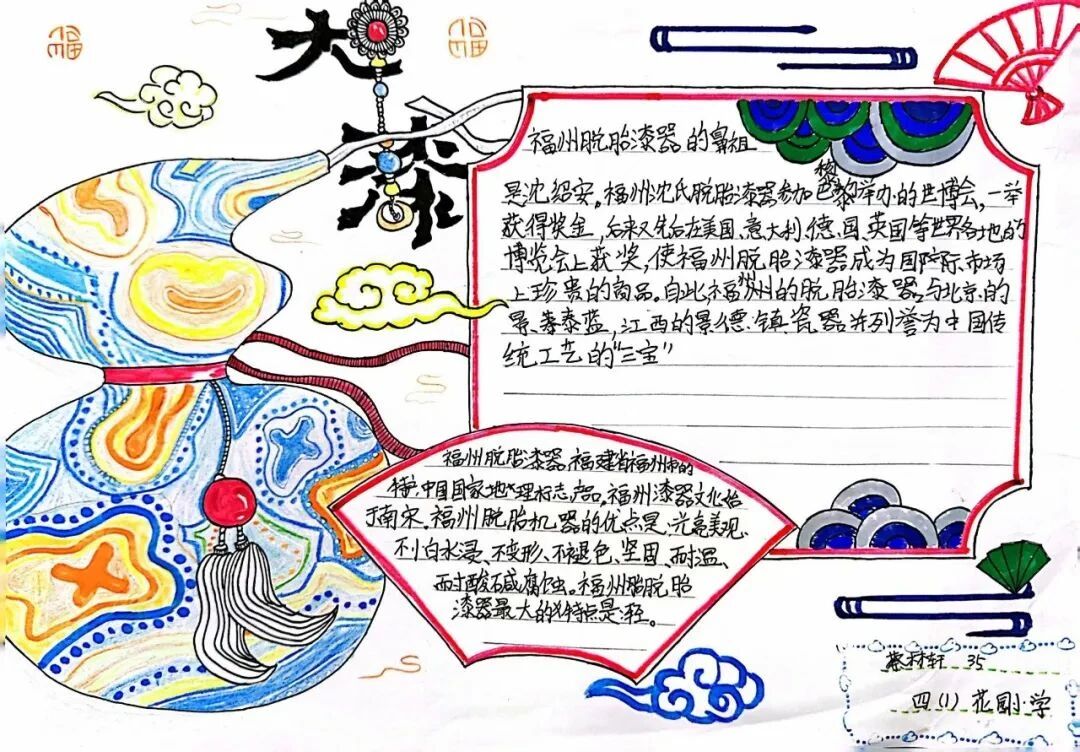 福
福
大漆
福州脱胎漆器的鼻祖
是沈绍安。福州沈氏脱胎漆器参加巴黎举办的世博会,一举
获得奖金,后来又先后在美国、意大利、德国、英国等世界各地的
博览会上获奖,使福州脱胎漆器成为国际市场
上珍贵的商品。自此福州的脱胎漆器,与北京的
景泰蓝,江西的景德镇瓷器并列誉为中国传
统工艺的"三宝"
福州脱胎漆器,福建省福州市的
特产,中国国家地理标志产品。福州漆器文化始
于南宋。福州脱胎机器的优点是:光亮美观、
不小白水浸、不变形、不褪色、坚固、耐温、
耐酸碱腐蚀。福州脂脱胎
漆器最大的特点是:轻。
轩 35
四(1) 花园小学